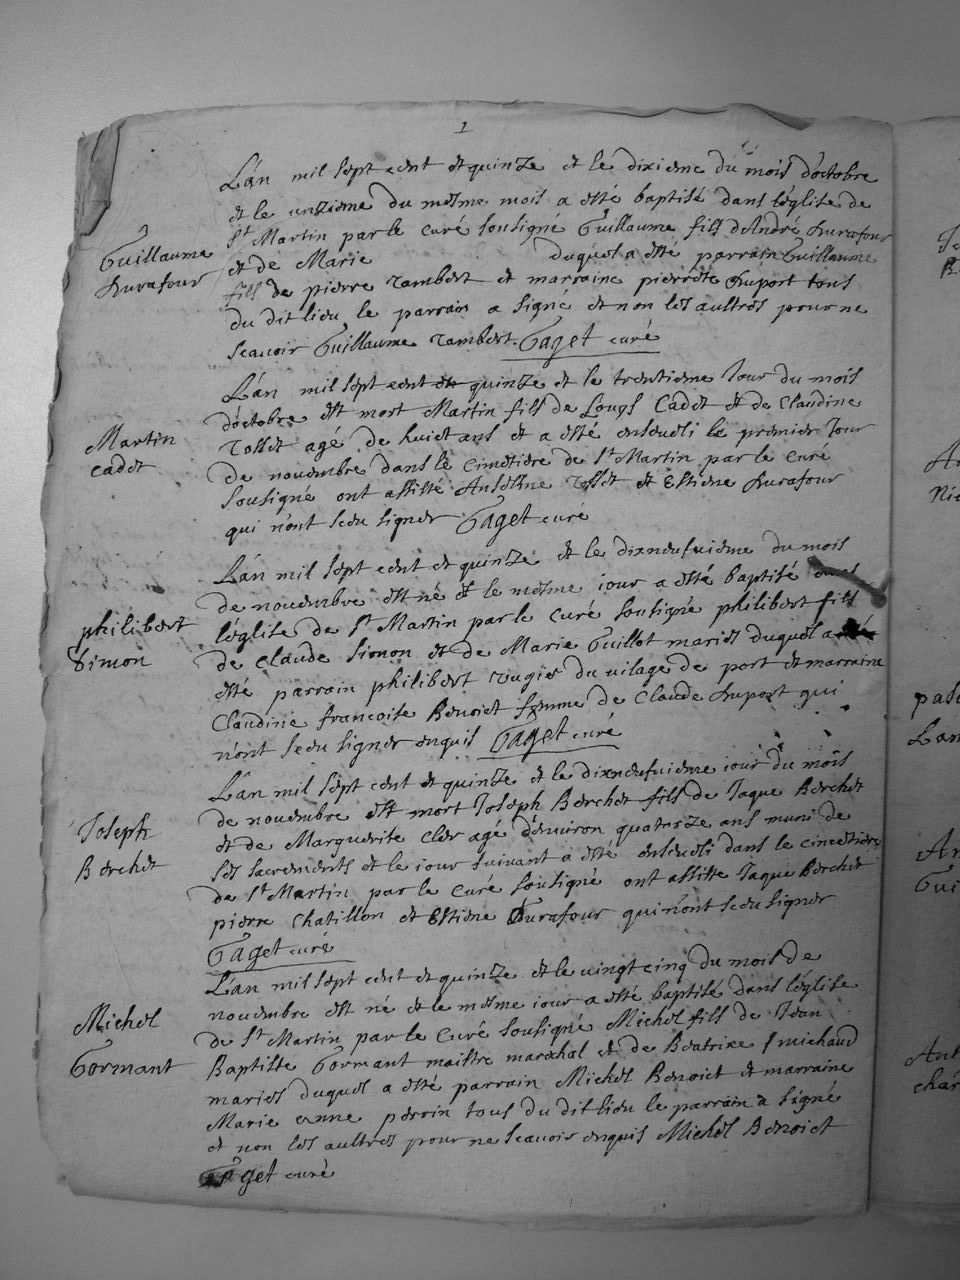 1
L'an mil sept cent et quinze et le dixieme du mois d'octobre
et le unzieme du mesme mois a esté baptisé dans l'église de
St Martin par le curé sousigné Guillaume fils d'André Durafour
Guillaume
Durafour
et de Marie duquel a esté parrain Guillaume
fils de pierre rambert et marraine pierrete Duport tous
du dit lieu le parrain a signé et non les aultres pour ne
scavoir Guillaume rambert. Gaget curé
L'an mil sept cent et quinze et le trentieme Jour du mois
d'octobre est mort Martin fils de Louys Cadet et de Claudine
Martin
cadet
rosset agé de huict ans et a esté enseveli le premier Jour
de novembre dans le cimetiere de St Martin par le curé
sousigné ont assisté Anselme rosset et Estiene Durafour
qui n'ont sceu signer Gaget curé
L'an mil sept cent et quinze et le dixneufvieme du mois
de novembre est né et le mesme iour a esté baptisé dans
philibert
Simon
l'église de St Martin par le curé sousigné philibert fils
de Claude Simon et de Marie Guillot mariés duquel a
esté parrain philibert rugier du vilage de port et marraine
Claudine francoise Benoict femme de Claude Duport qui
n'ont sceu signer enquis Gaget curé
L'an mil sept cent et quinze et le dixneufvieme iour du mois
de novembre est mort Joseph Berchet fils de Jaque Berchet
Joseph
Berchet
et de Marguerite Cler agé d'environ quatorze ans muni de
ses sacrements et le iour suivant a esté enseveli dans le cimetiere
de St Martin par le curé sousigné ont assisté Jaque Berchet
pierre chatillon et Estiene Durafour qui n'ont sceu signer
Gaget curé
L'an mil sept cent et quinze et le vingt cinq du mois de
novembre est né et le mesme iour a esté baptisé dans l'église
Michel
Gormant
de St Martin par le curé sousigné Michel fils de Jean
Baptiste Gormant maistre marechal et de Beatrixe michaud
mariés duquel a esté parrain Michel Benoict et marraine
Marie anne perrin tous du dit lieu le parrain a signé
et non les aultres pour ne scavoir enquis Michel Benoict
Gaget curé